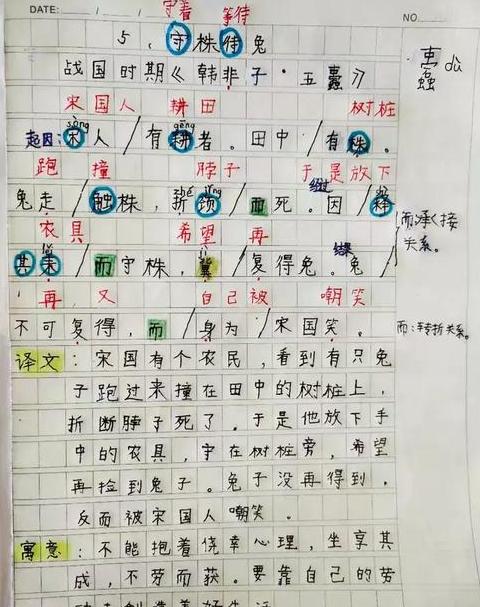 DATE: / / NO.
守着 等待
5、守株待兔
战国时期《韩非子·五蠹》 蠹 dù
宋国人 耕田 树桩
sòng gēng
起因: 宋人/有耕者。田中/有株。
跑 撞 脖子 于是放下
zhé jǐng
兔走/触株,折颈/而死。因/释
农具 希望 再
其耒/而守株,冀/复得兔。兔/
而:承接
关系。
再,又 自己被 嘲笑
不可复得,而/身为/宋国笑。
而:转折关系。
译文:宋国有个农民,看到有只兔
子跑过来撞在田中的树桩上,
折断脖子死了。于是他放下手
中的农具,守在树桩旁,希望
再捡到兔子。兔子没再得到,
反而被宋国人嘲笑。
寓意:不能抱着侥幸心理,坐享其
成,不劳而获。要靠自己的劳